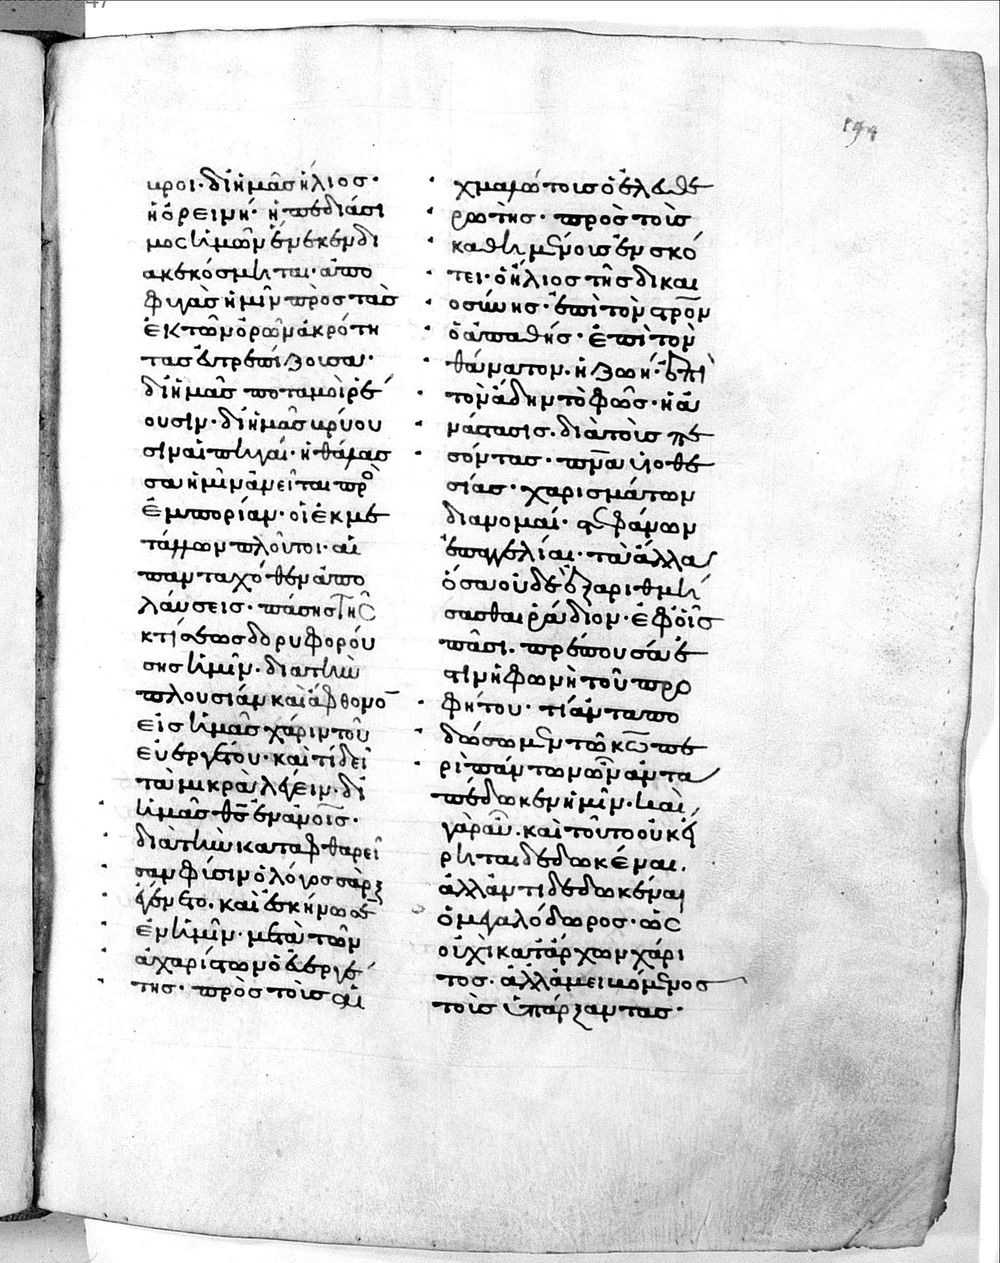 194
κροι· δι ἡμᾶς ἥλιος·
ἡ ὀρεινή· ἡ πεδιάσι
μος ἡμῶν ἕνεκεν δι
ακεκόσμηται· ἀπο
φυγὰς ἡμῖν πρὸς τὰς
ἐκ τῶν ὀρῶν ἀκρότη
τας εὐτρεπίζουσα·
δι ἡμᾶς ποταμοὶ ῥέ
ουσιν· δι ἡμᾶς κρύου
σιν αἱ πηγαί· ἡ θάλασ
σα ἡμῖν ἀνεῖται πρὸ
ἐμπορίαν· οἱ ἐκ με
τάλλων πλοῦτοι· αἱ
πανταχόθεν ἀπο
λαύσεις· πάσης τῆς
κτίσεως δορυφορού
σης ἡμῖν· διὰ τὴν
πλουσίαν καὶ ἄφθονο
εἰς ἡμᾶς χάριν τοῦ
εὐεργέτου· καὶ τί δεῖ
τὰ μικρὰ λέγειν· δι
ἡμᾶς θς ἐν ἀνοις·
διὰ τὴν καταφθαρεῖ
σαν φύσιν ὁ λόγος σὰρξ
ἐγένετο· καὶ ἐσκήνωσε
ἐν ἡμῖν· μετὰ τῶν
ἀχαρίστων ὁ εὐεργέ
της· πρὸς τοὺς αἰ
χμαλώτους ὁ ἐλευθε
ρωτὴς· πρὸς τοὺς
καθημένους ἐν σκό
τει· ὁ ἥλιος τῆς δικαι
οσύνης· ἐπὶ τὸν στρον
ὁ ἀπαθής· ἐπὶ τὸν
θάνατον· ἡ ζωή· ἐπὶ
τὸν ἅδην τὸ φῶς· ἡ ἀ
νάστασις· διὰ τοὺς πε
σόντας· πνα υἱοθε
σίας· χαρισμάτων
διανομαί· στεφάνων
ἐπαγγελίαι· τὰ ἄλλα
ὅσα οὐδὲ ἐξαριθμή
σασθαι ῥάδιον· ἐφ οἷς
πᾶσι· πρέπουσά ἐ
στιν ἡ φωνὴ τοῦ προ
φήτου· τί ἀνταπο
δώσωμεν τῷ κω πε
ρὶ πάντων ὧν ἀντα
πέδωκεν ἡμῖν· καὶ
γὰρ αὖ· καὶ τοῦτο οὐκ εἴ
ρηται δεδωκέναι·
ἀλλ ἀντιδεδωκέναι
ὁ μεγαλόδωρος· ὡς
οὐχὶ κατάρχων χάρι
τος· ἀλλ ἀμειβόμενος
τοὺς ὑπάρξαντας·